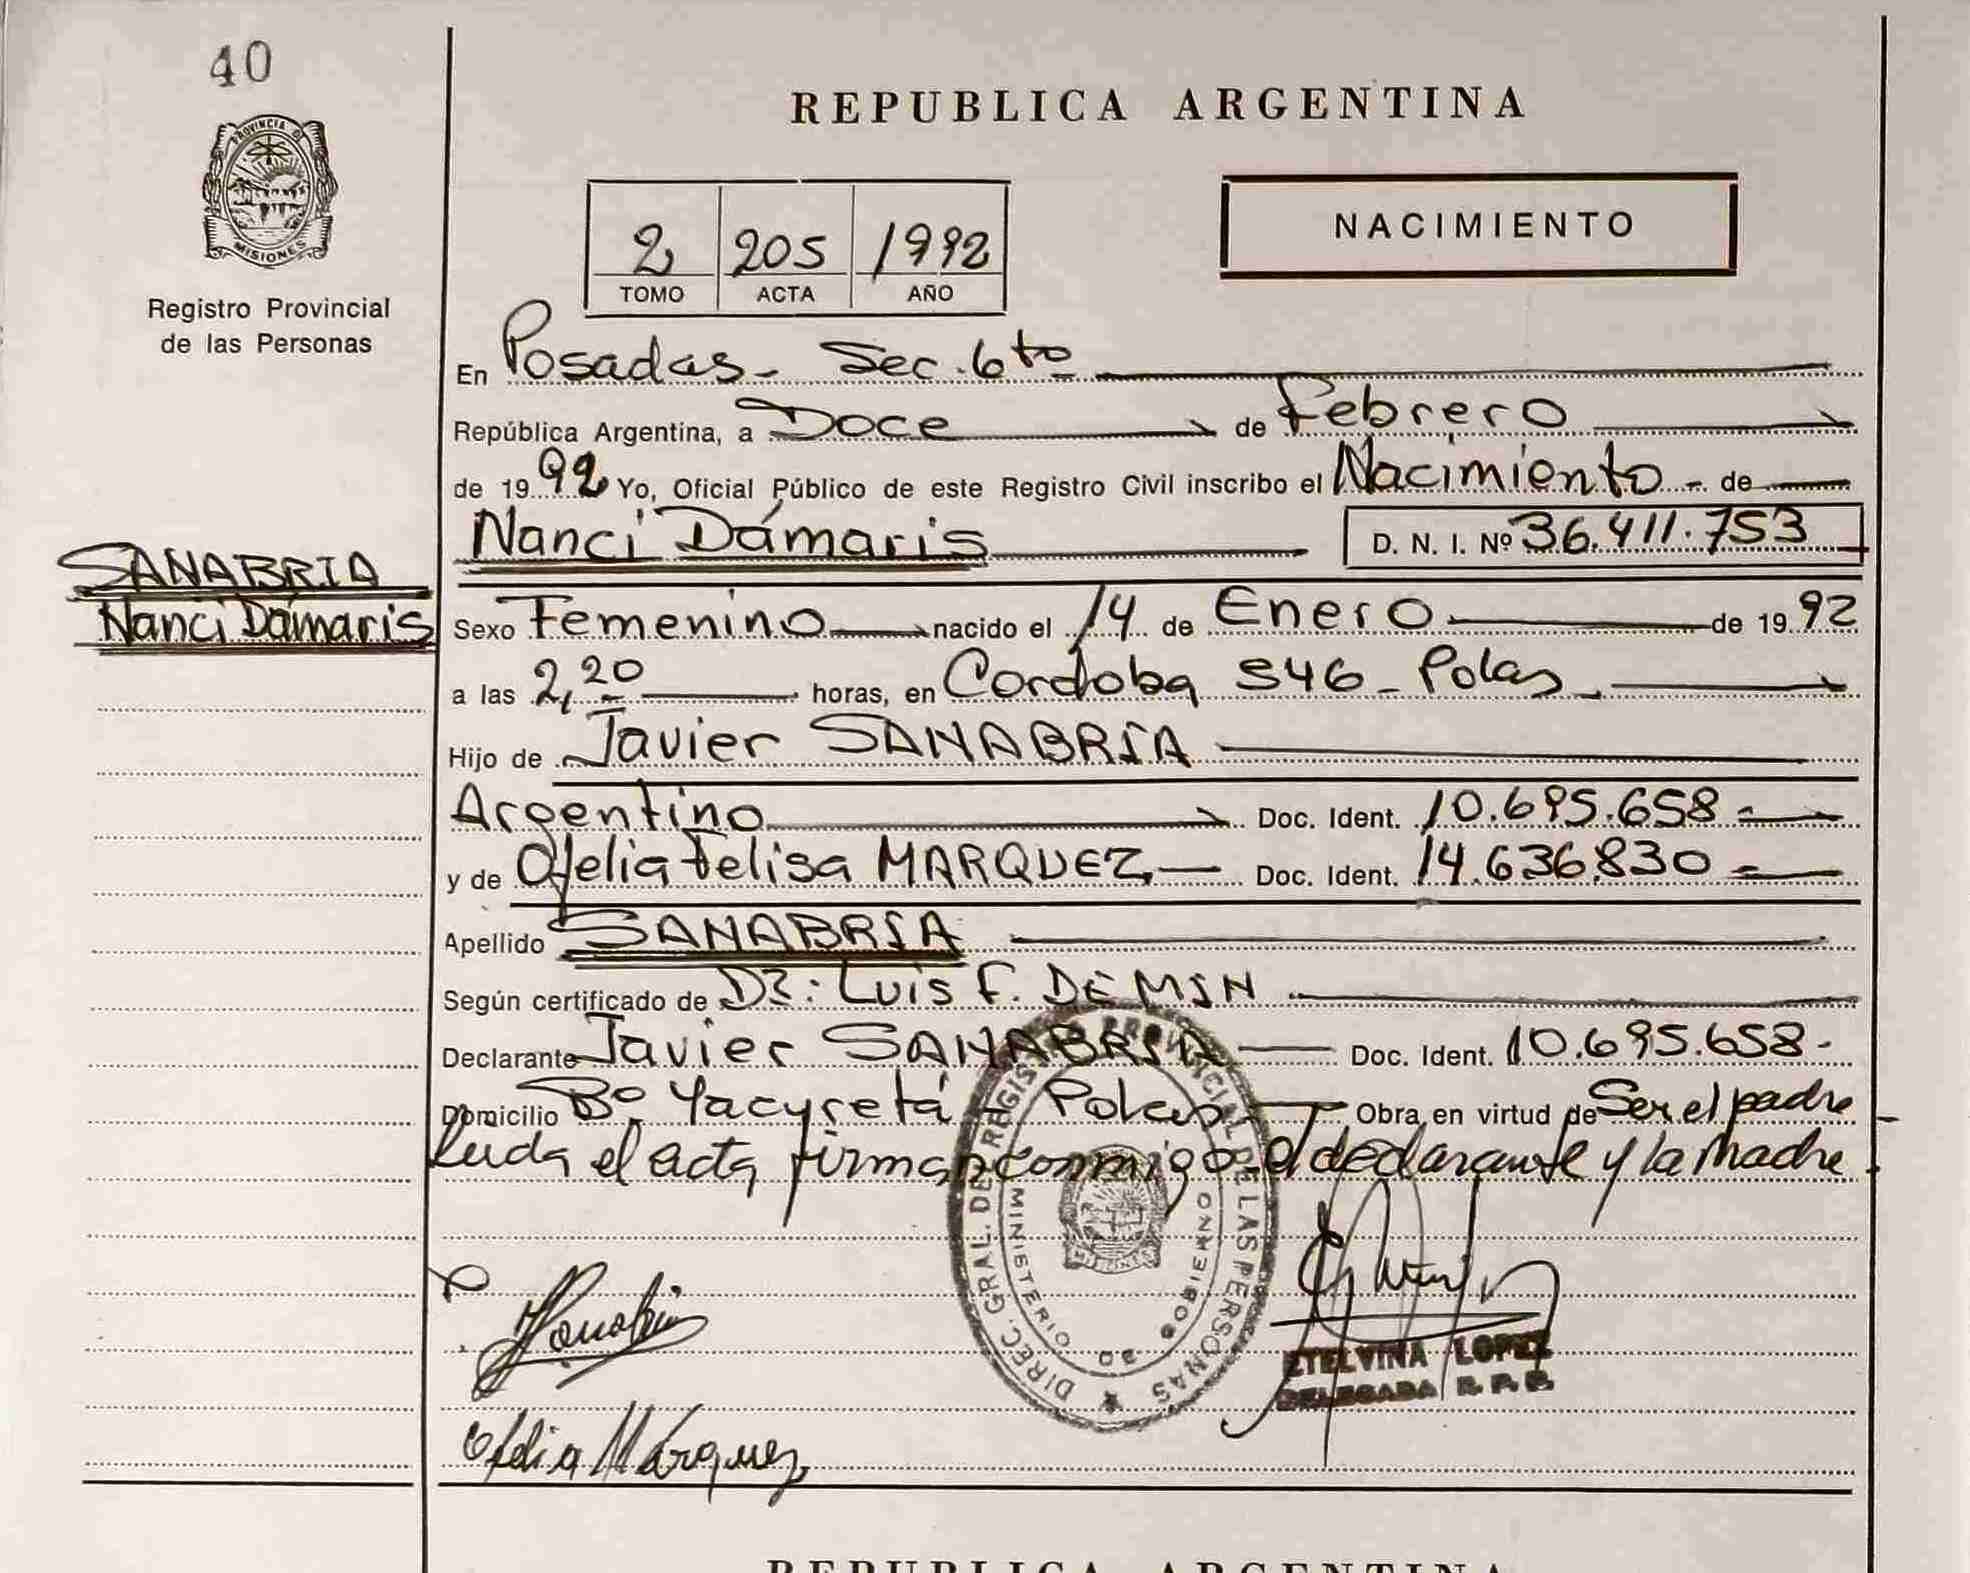 40
PROVINCIA DE
MISIONES
Registro Provincial
de las Personas
SANABRIA
Nanci Dámaris
REPUBLICA ARGENTINA
NACIMIENTO
2 205 1992
TOMO ACTA AÑO
En Posadas - Sec. 6to
República Argentina, a Doce de Febrero
de 1992 Yo, Oficial Público de este Registro Civil inscribo el Nacimiento - de
Nanci Dámaris D. N. I. Nº 36.411.753
Sexo Femenino nacido el 14 de Enero de 1992
a las 2,20 horas, en Cordoba 546 - Pdas
Hijo de Javier SANABRIA
Argentino Doc. Ident. 10.695.658
y de Ofelia Felisa MARQUEZ Doc. Ident. 14.636.830
Apellido SANABRIA
Según certificado de Dr: Luis F. DEMIN
Declarante Javier SANABRIA Doc. Ident. 10.695.658-
Domicilio Bº Yacyretá Pdas Obra en virtud de Ser el padre
Leida el acta firman conmigo el declarante y la madre
DIREC. GRAL. DEL REGISTRO PROVINCIAL DE LAS PERSONAS
MINISTERIO DE GOBIERNO
MISIONES
ETELVINA LOPEZ
DELEGADA R. P. P.
Ofelia Márquez
REPUBLICA ARGENTINA